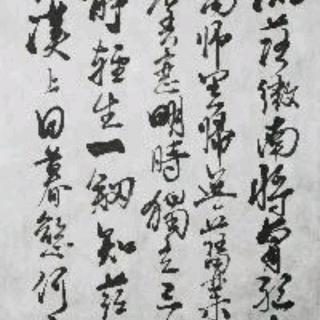 流落徵南將曾驅
萬師罷歸無舊業
戀明時獨立三
静輕生一劍知茫
漢上日暮慾何